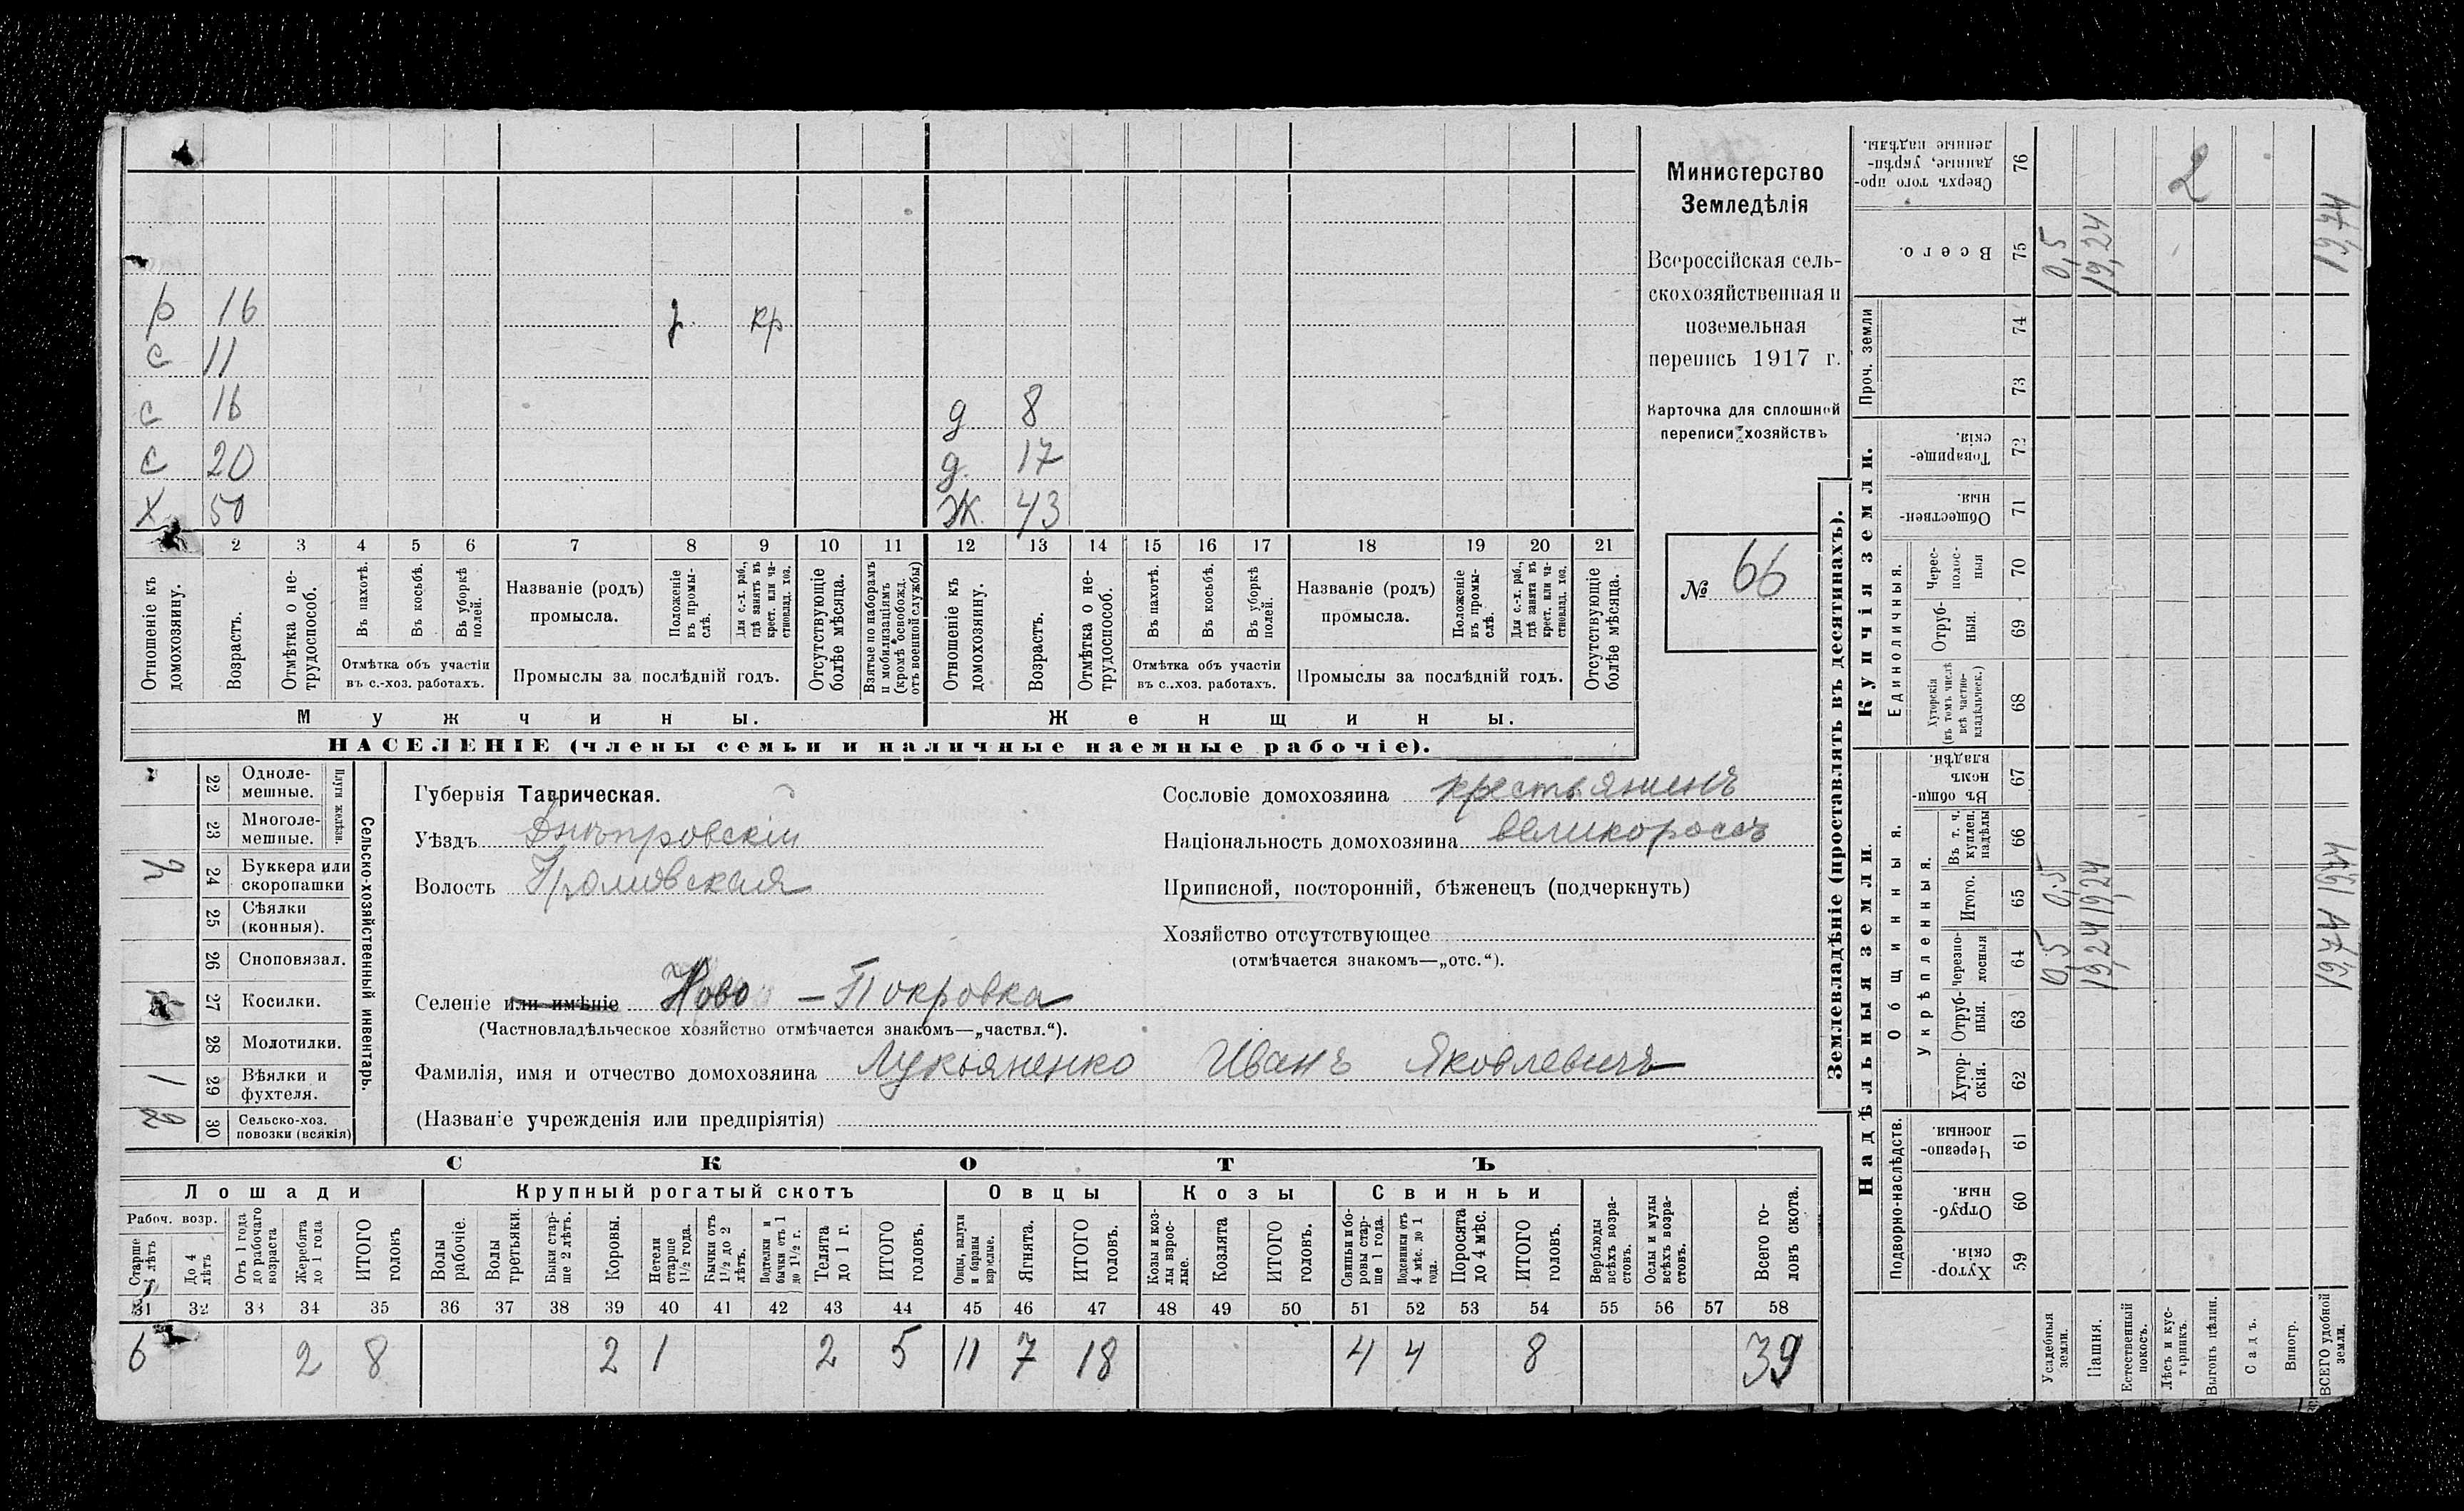 р 16 р. кр
с 11
с 16 д 8
с 20 д. 17
Х 50 Ж. 43
1 2 3 4 5 6 7 8 9 10 11 12 13 14 15 16 17 18 19 20 21
Отношеніе къ домохозяину.
Возрастъ.
Отмѣтка о не-
трудоспособ.
Въ пахотѣ.
Въ косьбѣ.
Въ уборкѣ
полей.
Отмѣтка объ участіи
въ с.-хоз. работахъ.
Названіе (родъ)
промысла.
Положеніе
въ промы-
слѣ.
Для с.-х. раб.,
гдѣ занятъ въ
крест. или ча-
стновлад. хоз.
Промыслы за послѣдній годъ.
Отсутствующіе
болѣе мѣсяца.
Взятые по наборамъ
и мобилизаціямъ
(кромѣ освобожд.
отъ военной службы)
Отношеніе къ
домохозяину.
Возрастъ.
Отмѣтка о не-
трудоспособ.
Въ пахотѣ.
Въ косьбѣ.
Въ уборкѣ
полей.
Отмѣтка объ участіи
въ с.-хоз. работахъ.
Названіе (родъ)
промысла.
Положеніе
въ промы-
слѣ.
Для с.-х. раб.,
гдѣ занята въ
крест. или ча-
стновлад. хоз.
Промыслы за послѣдній годъ.
Отсутствующіе
болѣе мѣсяца.
Мужчины. Женщины.
НАСЕЛЕНІЕ (члены семьи и наличные наемные рабочіе).
Министерство
Земледѣлія
Всероссійская сель-
скохозяйственная и
поземельная
перепись 1917 г.
Карточка для сплошной
переписи хозяйствъ
№ 66
Сельско-хозяйственный инвентарь.
Плуги желѣзн.
22 Одноле-
мешные.
23 Многоле-
мешные.
24 Буккера или
скоропашки
25 Сѣялки
(конныя).
26 Сноповязал.
27 Косилки.
28 Молотилки.
1 29 Вѣялки и
фухтеля.
2 30 Сельско-хоз.
повозки (всякія)
Губернія Таврическая.
Уѣздъ Днѣпровскій
Волость Громовская
Сословіе домохозяина крестьянинъ
Національность домохозяина великороссъ
Приписной, посторонній, бѣженецъ (подчеркнуть)
Хозяйство отсутствующее
(отмѣчается знакомъ—„отс.“).
Селеніе или имѣніе Ново-Покровка
(Частновладѣльческое хозяйство отмѣчается знакомъ—„частвл.“).
Фамилія, имя и отчество домохозяина Лукьяненко Иванъ Яковлевичъ
(Названіе учрежденія или предпріятія)
СКОТЪ
Лошади Крупный рогатый скотъ Овцы Козы Свиньи
Рабоч. возр.
Старше
4 лѣтъ
До 4
лѣтъ
Отъ 1 года
до рабочаго
возраста
Жеребята
до 1 года
ИТОГО
головъ
Волы
рабочіе.
Волы
третьяки.
Быки стар-
ше 2 лѣтъ.
Коровы.
Нетели
старше
1½ года.
Бычки отъ
1½ до 2
лѣтъ.
Подтелки и
бычки отъ 1
до 1½ г.
Телята
до 1 г.
ИТОГО
головъ.
Овцы, валухи
и бараны
взрослые.
Ягнята.
ИТОГО
головъ.
Козы и коз-
лы взрос-
лые.
Козлята
ИТОГО
головъ.
Свиньи и бо-
ровы стар-
ше 1 года.
Подсвинки отъ
4 мѣс. до 1
года.
Поросята
до 4 мѣс.
ИТОГО
головъ.
Верблюды
всѣхъ возра-
стовъ.
Ослы и мулы
всѣхъ возра-
стовъ.
Всего го-
ловъ скота.
31 32 33 34 35 36 37 38 39 40 41 42 43 44 45 46 47 48 49 50 51 52 53 54 55 56 57 58
6 2 8 2 1 2 5 11 7 18 4 4 8 39
Землевладѣніе (проставлять въ десятинахъ).
Надѣльныя земли.
Купчія земли.
Проч. земли
Подворно-наслѣдств.
Общинныя.
Укрѣпленныя.
Единоличныя.
Хутор-
скія. 59
Отруб-
ныя. 60
Черезпо-
лосныя. 61
Хутор-
скія. 62
Отруб-
ныя. 63
Черезпо-
лосныя 64
Итого. 65
Въ т. ч.
куплен.
надѣлы 66
Въ общи-
номъ
владѣн. 67
Хуторскія
(въ томъ числѣ
всѣ частно-
владѣльческ.) 68
Отруб-
ныя. 69
Черес-
полос-
ныя 70
Обществен-
ныя. 71
Товарище-
скія. 72
73
74
Всего. 75
Сверхъ того про-
данные, укрѣп-
ленные надѣлы. 76
Усадебныя
земли. 0,5 0,5 0,5
Пашня. 19,24 19,24 19,24
Естественный
покосъ.
Лѣсъ и кус-
тарникъ. 2
Выгонъ цѣлин.
Садъ.
Виногр.
ВСЕГО удобной
земли. 19,74 19,74 19,74